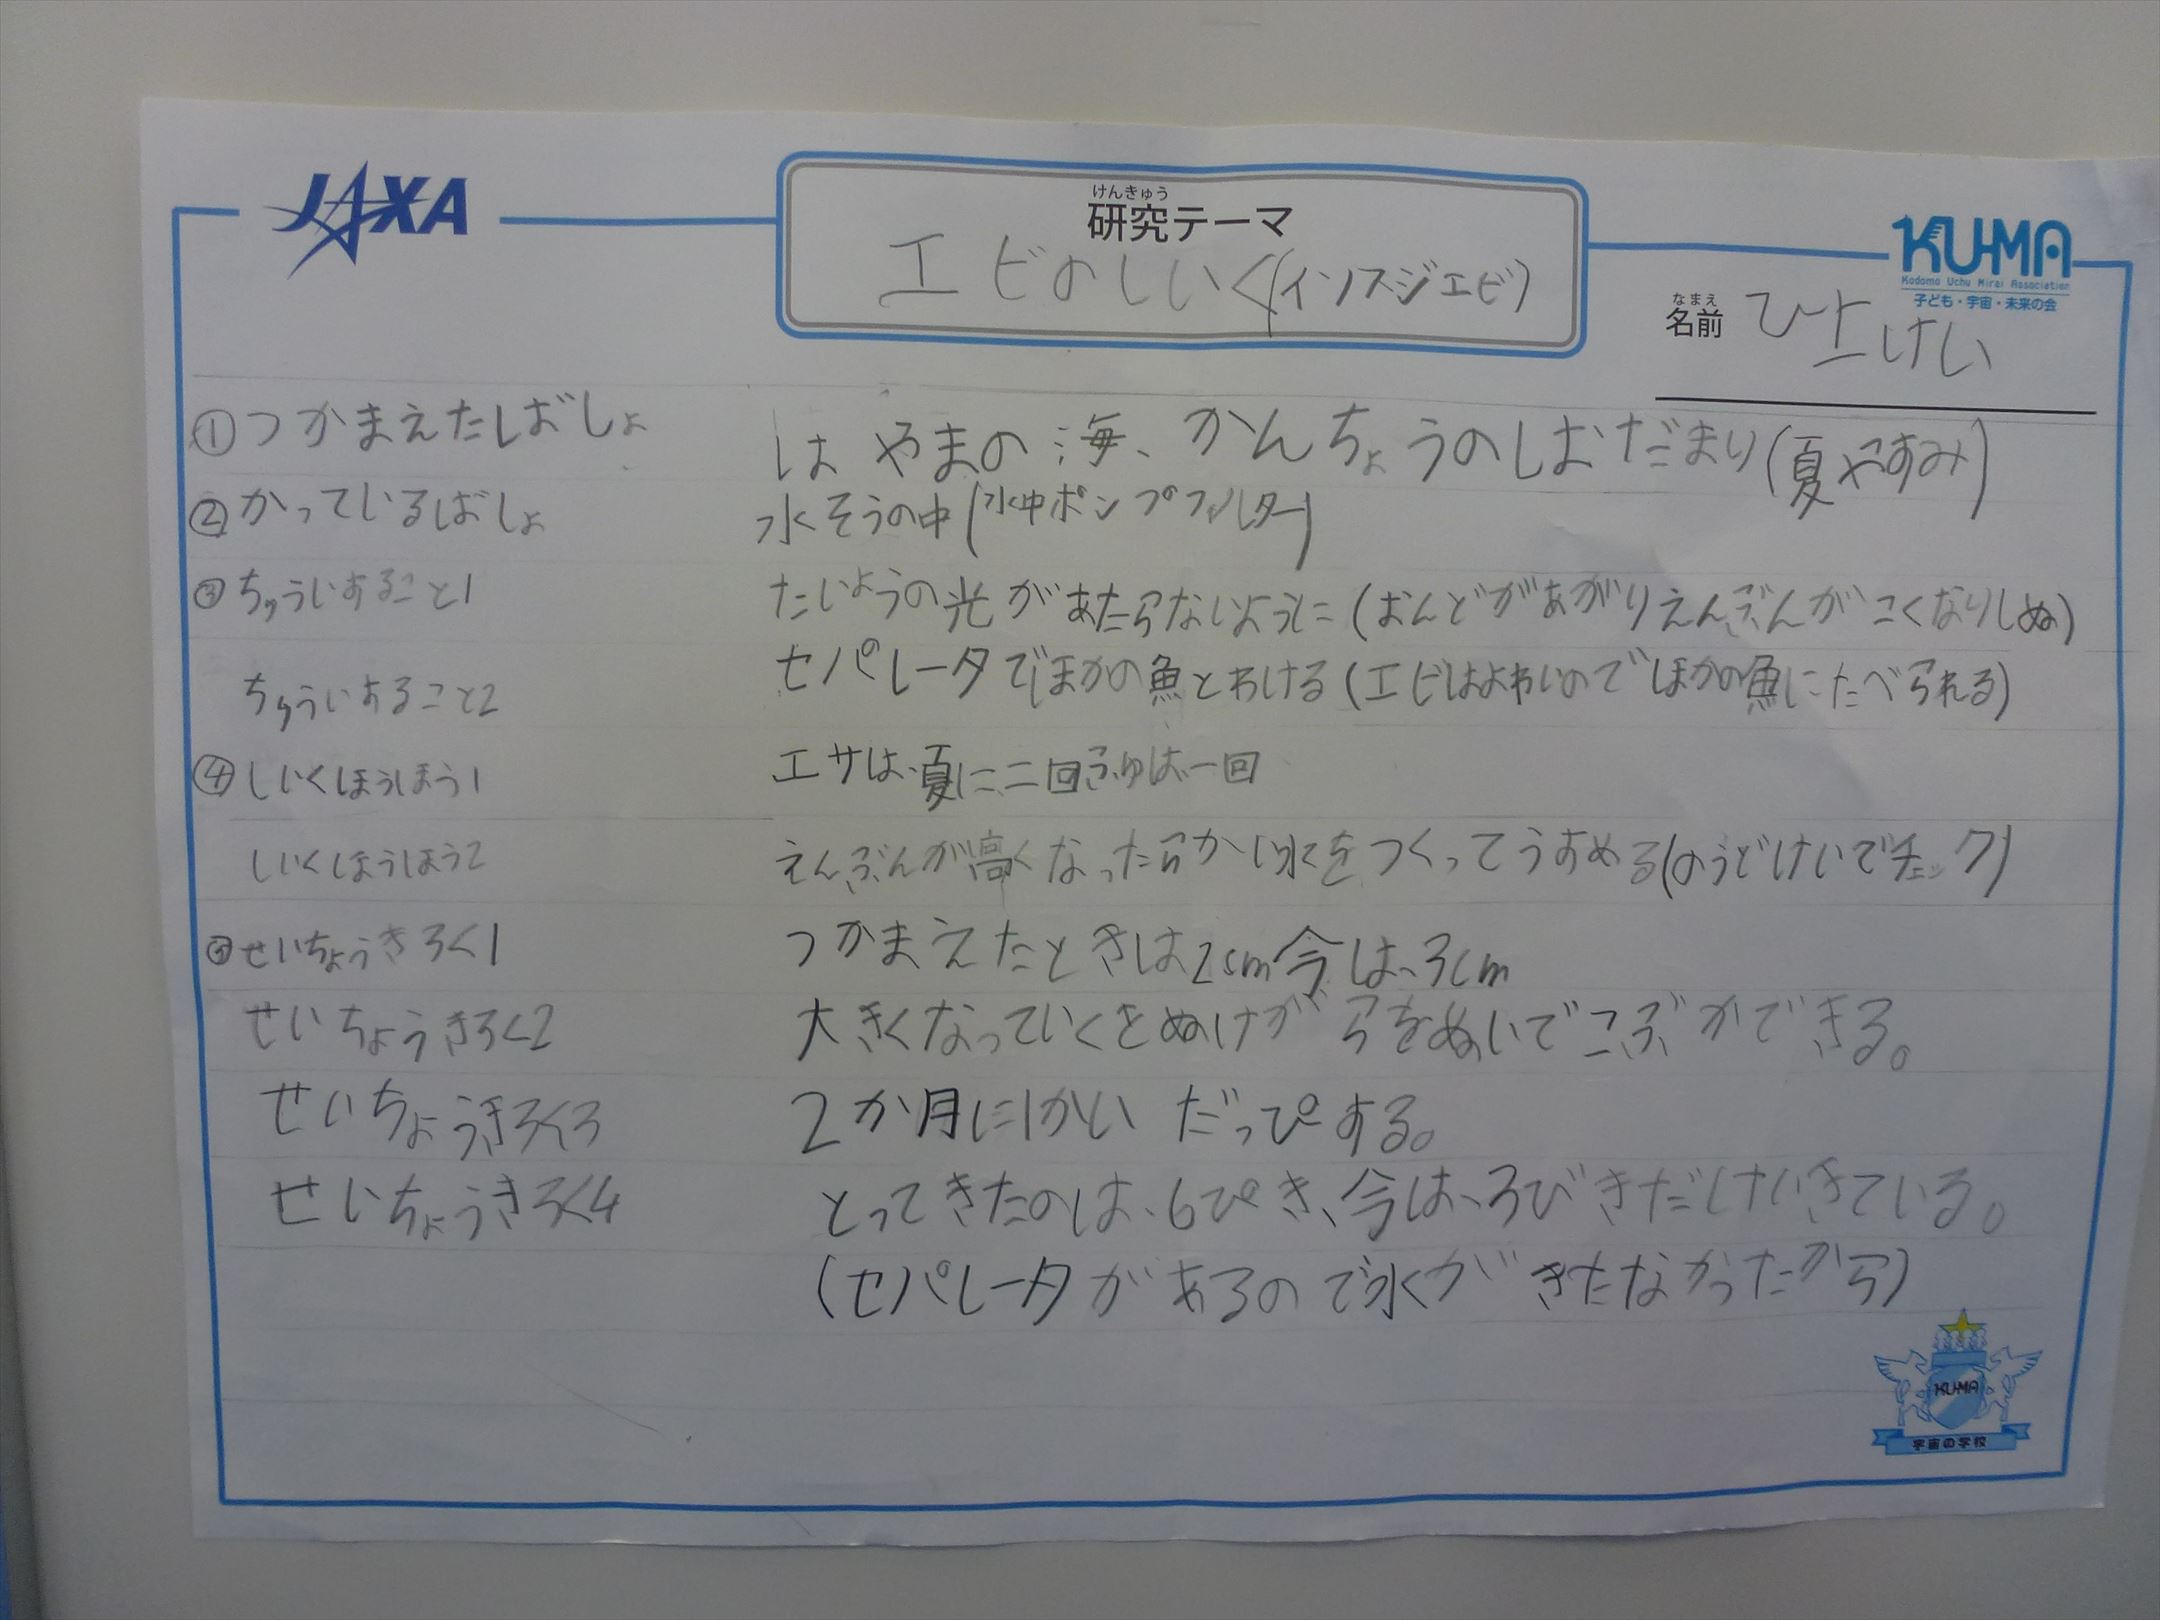 JAXA
けんきゅう
研究テーマ
エビのしいく(イソスジエビ)
KU-MA
Kodomo Uchu Mirai Association
子ども・宇宙・未来の会
なまえ
名前 ひ上けい
①つかまえたばしょ はやまの海、かんちょうのしおだまり(夏やすみ)
②かっているばしょ 水そうの中(水中ポンプフィルター)
③ちゅういすること1 たいようの光があたらないように(おんどがあがりえんぶんがこくなりしぬ)
ちゅういすること2 セパレータでほかの魚とわける(エビはよわいのでほかの魚にたべられる)
④しいくほうほう1 エサは、夏に二回ふゆは、一回
しいくほうほう2 えんぶんが高くなったらかい水をつくってうすめる(のうどけいでチェック)
⑤せいちょうきろく1 つかまえたときは2cm今は、3cm
せいちょうきろく2 大きくなっていくとぬけがらをぬいでこぶができる。
せいちょうきろく3 2か月に1かい だっぴする。
せいちょうきろく4 とってきたのは、6ぴき、今は、3びきだけいきている。
(セパレータがあるので水がきたなかったから)
KU-MA
宇宙の学校